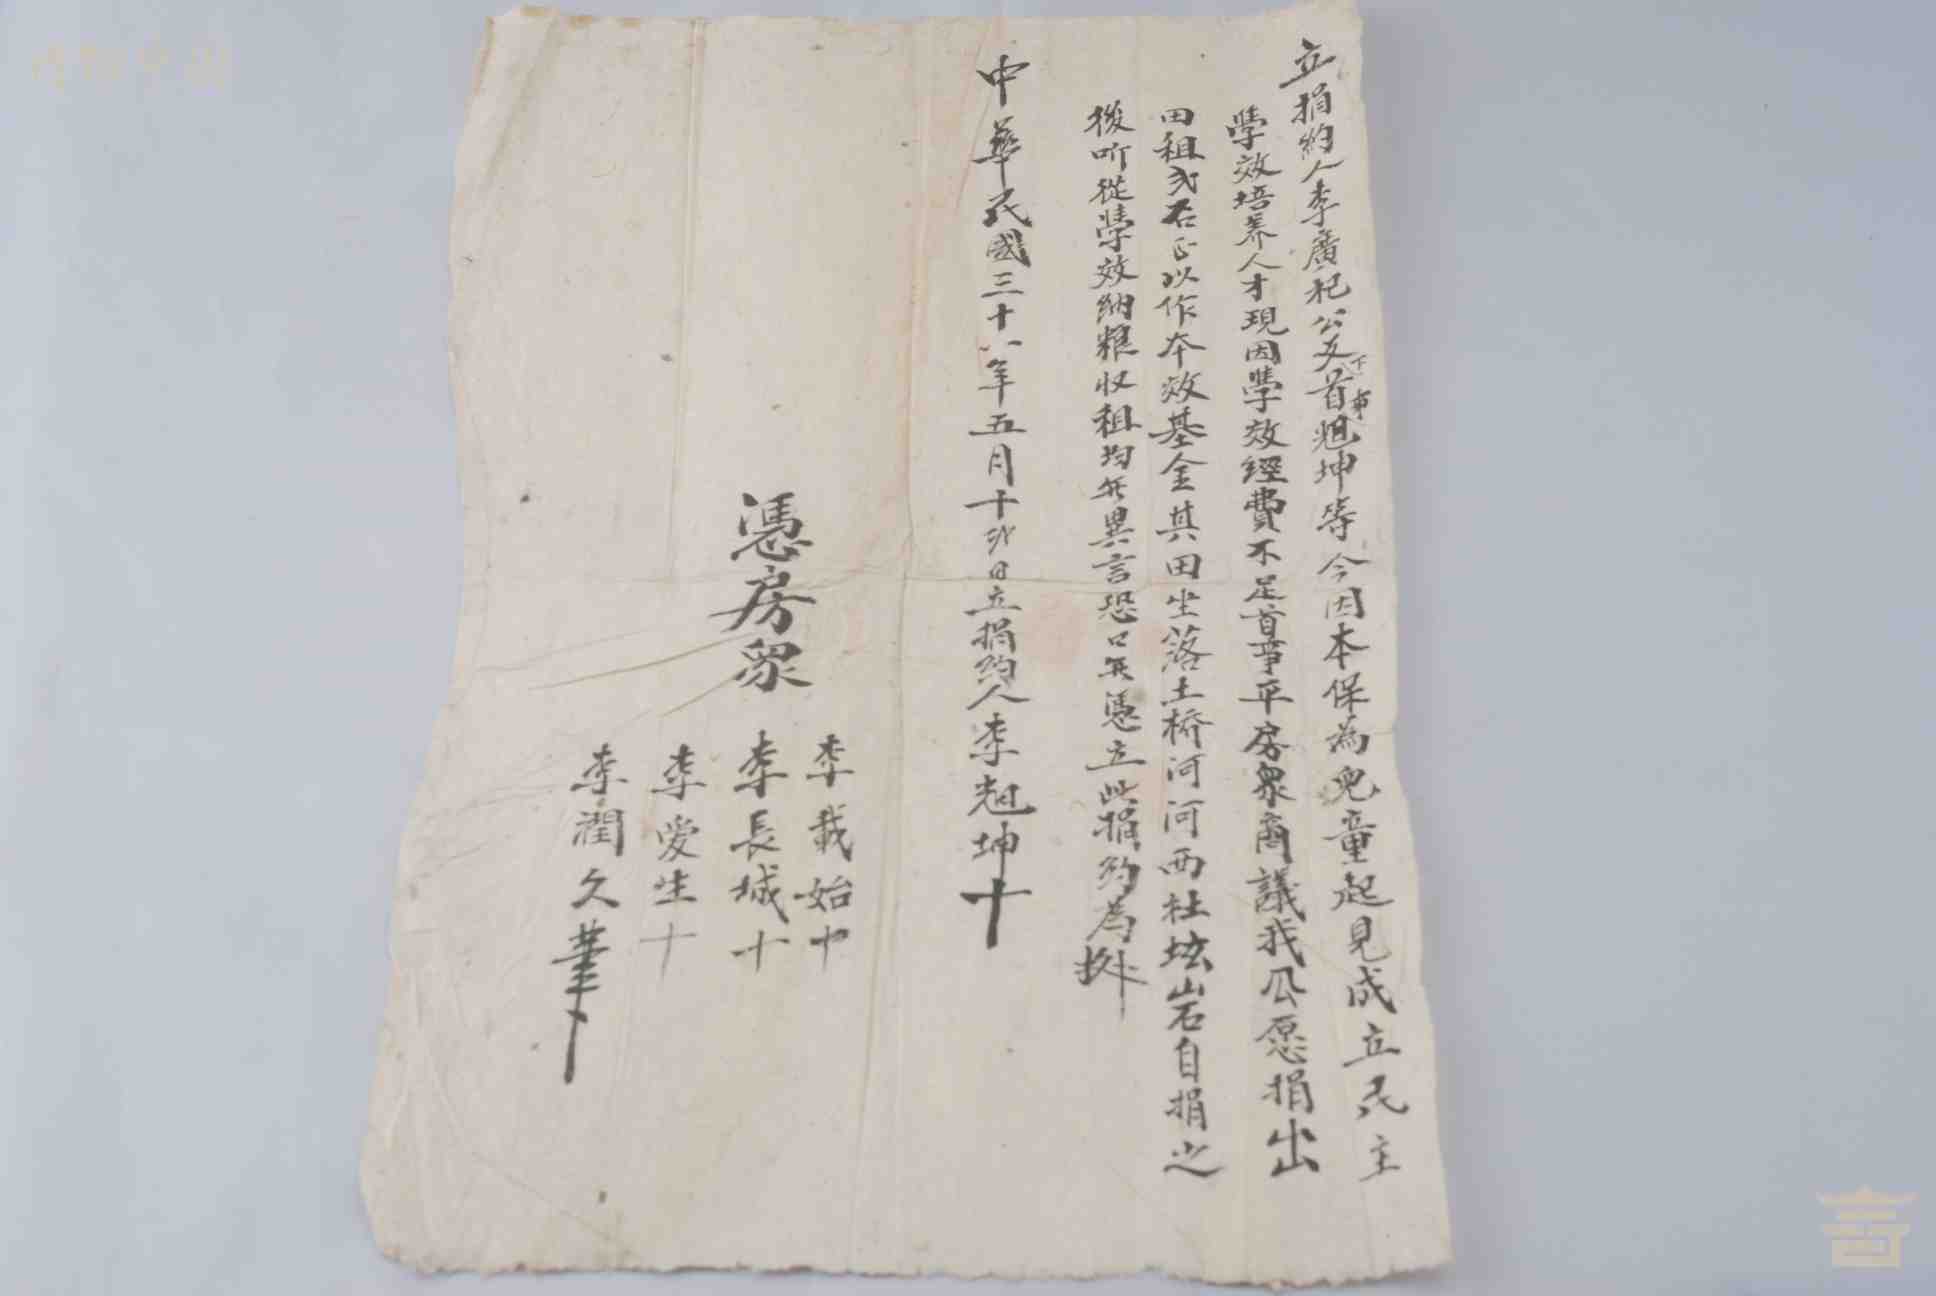 立捐約人李廣祀公支下首事旭坤等今因本保為兒童起見成立民主
學效培养人才現因學效經費不足首事平房衆商議我公愿捐出
田租弍石正以作本效基金其田坐落土橋河河西杜坛岩自捐之
後听從學效納粮收租均無異言恐口無憑立此捐約為據
中華民國三十八年五月十弍日立捐約人李旭坤十
憑房眾
李我始十
李長城十
李愛生十
李潤久筆